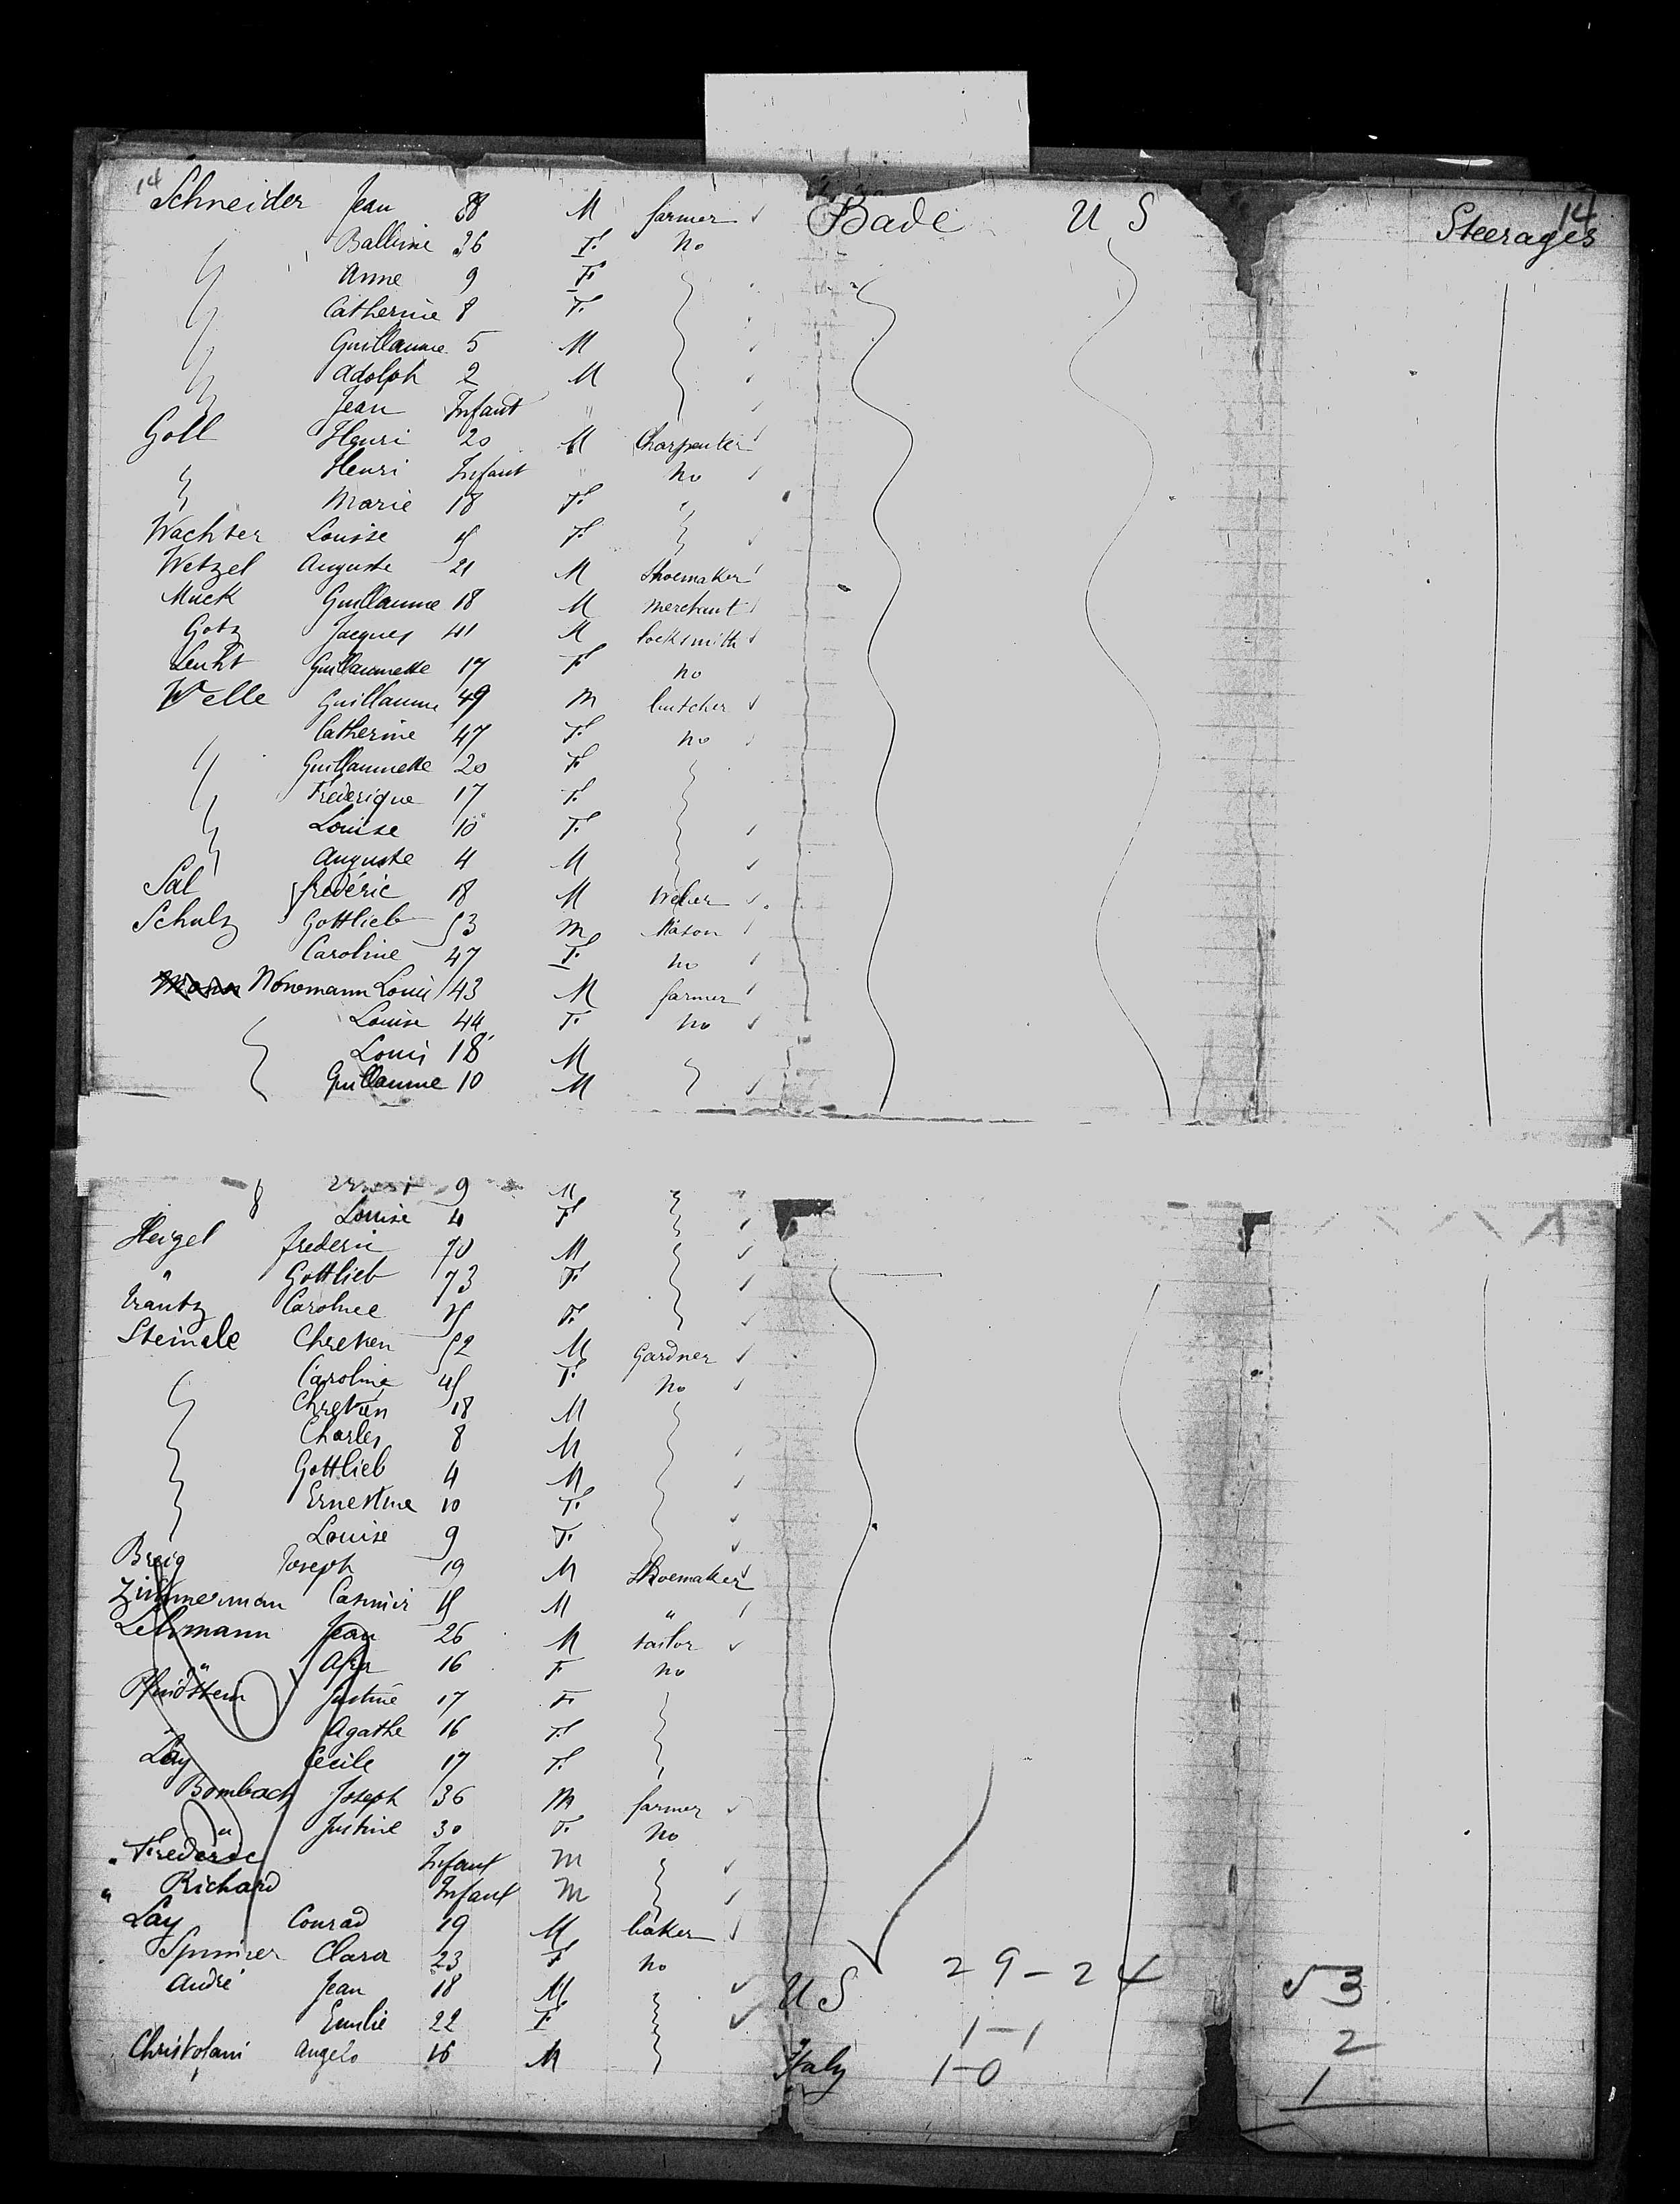 14 14
Schneider Jean 38 M farmer Bade U S Steerages
Balbine 36 F. no
Anne 9 F.
Catherine 8 F.
Guillaume 5 M
Adolph 2 M
Jean Infant "
Goll Henri 20 M Charpenter
Henri Infant " no
Marie 18 F.
Wachter Louise F.
Wetzel Auguste 21 M Shoemaker
Muck Guillaume 18 M merchant
Gotz Jacques 41 M locksmith
Guillaumette 17 F no
Welle Guillaume 49 M butcher
Catherine 47 F. no
Guillaumette 20 F
Frederique 17 F.
Louise 10 F.
Auguste 4 M
Sal frédéric 18 M Weber
Schulz Gottlieb 53 M Mason
Caroline 47 F. no
Wonomann Louis 43 M farmer
Louise 44 F. no
Louis 18 M
Guillaume 10 M
9 M
Louise 4 F
Heigel frederic 70 M
" Gottlieb 73 F
Caroline F.
Steinele Chretien 52 M Gardner
Caroline 45 F. no
Chretien 18 M
Charles 8 M
Gottlieb 4 M
Ernestine 10 F.
Louise 9 F.
Breig Joseph 19 M Shoemaker
Zimmerman Casimir M "
Lehmann Jean 26 M tailor
" Afra 16 F no
Justine 17 F.
Agathe 16 F.
Lay Cecile 17 F.
Bombach Joseph 36 M farmer
" Justine 30 F. no
" Frederic Infant M
" Richard Infant M
Lay Conrad 19 M baker
Clara 23 F no 29-24 53
André Jean 18 M U S
Emilie 22 F 1-1 2
Christofani Angelo 16 M Italy 1-0 1